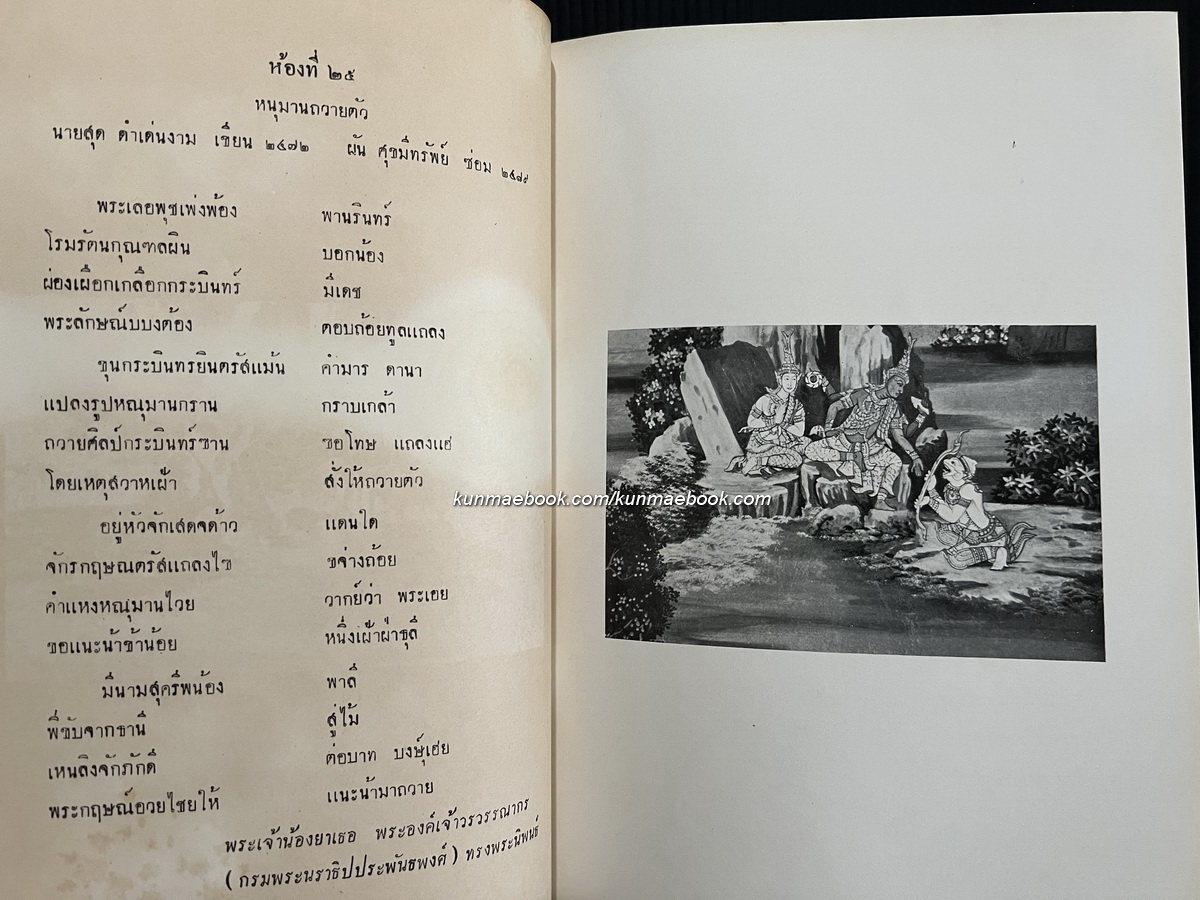 ห้องที่ ๒๕
หนุมานถวายตัว
นายสุด ดำเด่นงาม เขียน ๒๔๗๒ ผัน ศุขมีทรัพย์ ซ่อม ๒๔๗๙
พระเลอพุชเพ่งพ้อง พานรินทร์
โรมรัตนกุณฑลผิน บอกน้อง
ผ่องเผือกเกลือกกระบินทร์ มีเดช
พระลักษณ์บบงต้อง ตอบถ้อยทูลแถลง
ขุนกระบินทรยินตรัสแม้น คำมาร ดานา
แปลงรูปหณุมานกราน กราบเกล้า
ถวายศิลป์กระบินทร์ซาน ขอโทษ แถลงแฮ่
โดยเหตุสวาหเฝ้า สั่งให้ถวายตัว
อยู่หัวจักเสดจด้าว แดนใด
จักรกฤษณตรัสแถลงไข ขจ่างถ้อย
คำแหงหณุมานไวย วากย์ว่า พระเอย
ขอแนะนำข้าน้อย หนึ่งเฝ้าฝ่าธุลี
มีนามสุครีพน้อง พาลี
พี่ขับจากธานี สู่ไม้
เหนลิงจักภักดี ต่อบาท บงษุ์เฮย
พระกฤษณ์อวยไชยให้ แนะนำมาถวาย
พระเจ้าน้องยาเธอ พระองค์เจ้าวรวรรณากร
(กรมพระนราธิปประพันธพงศ์) ทรงพระนิพนธ์
kunmaebook.com/kunmaebook.com